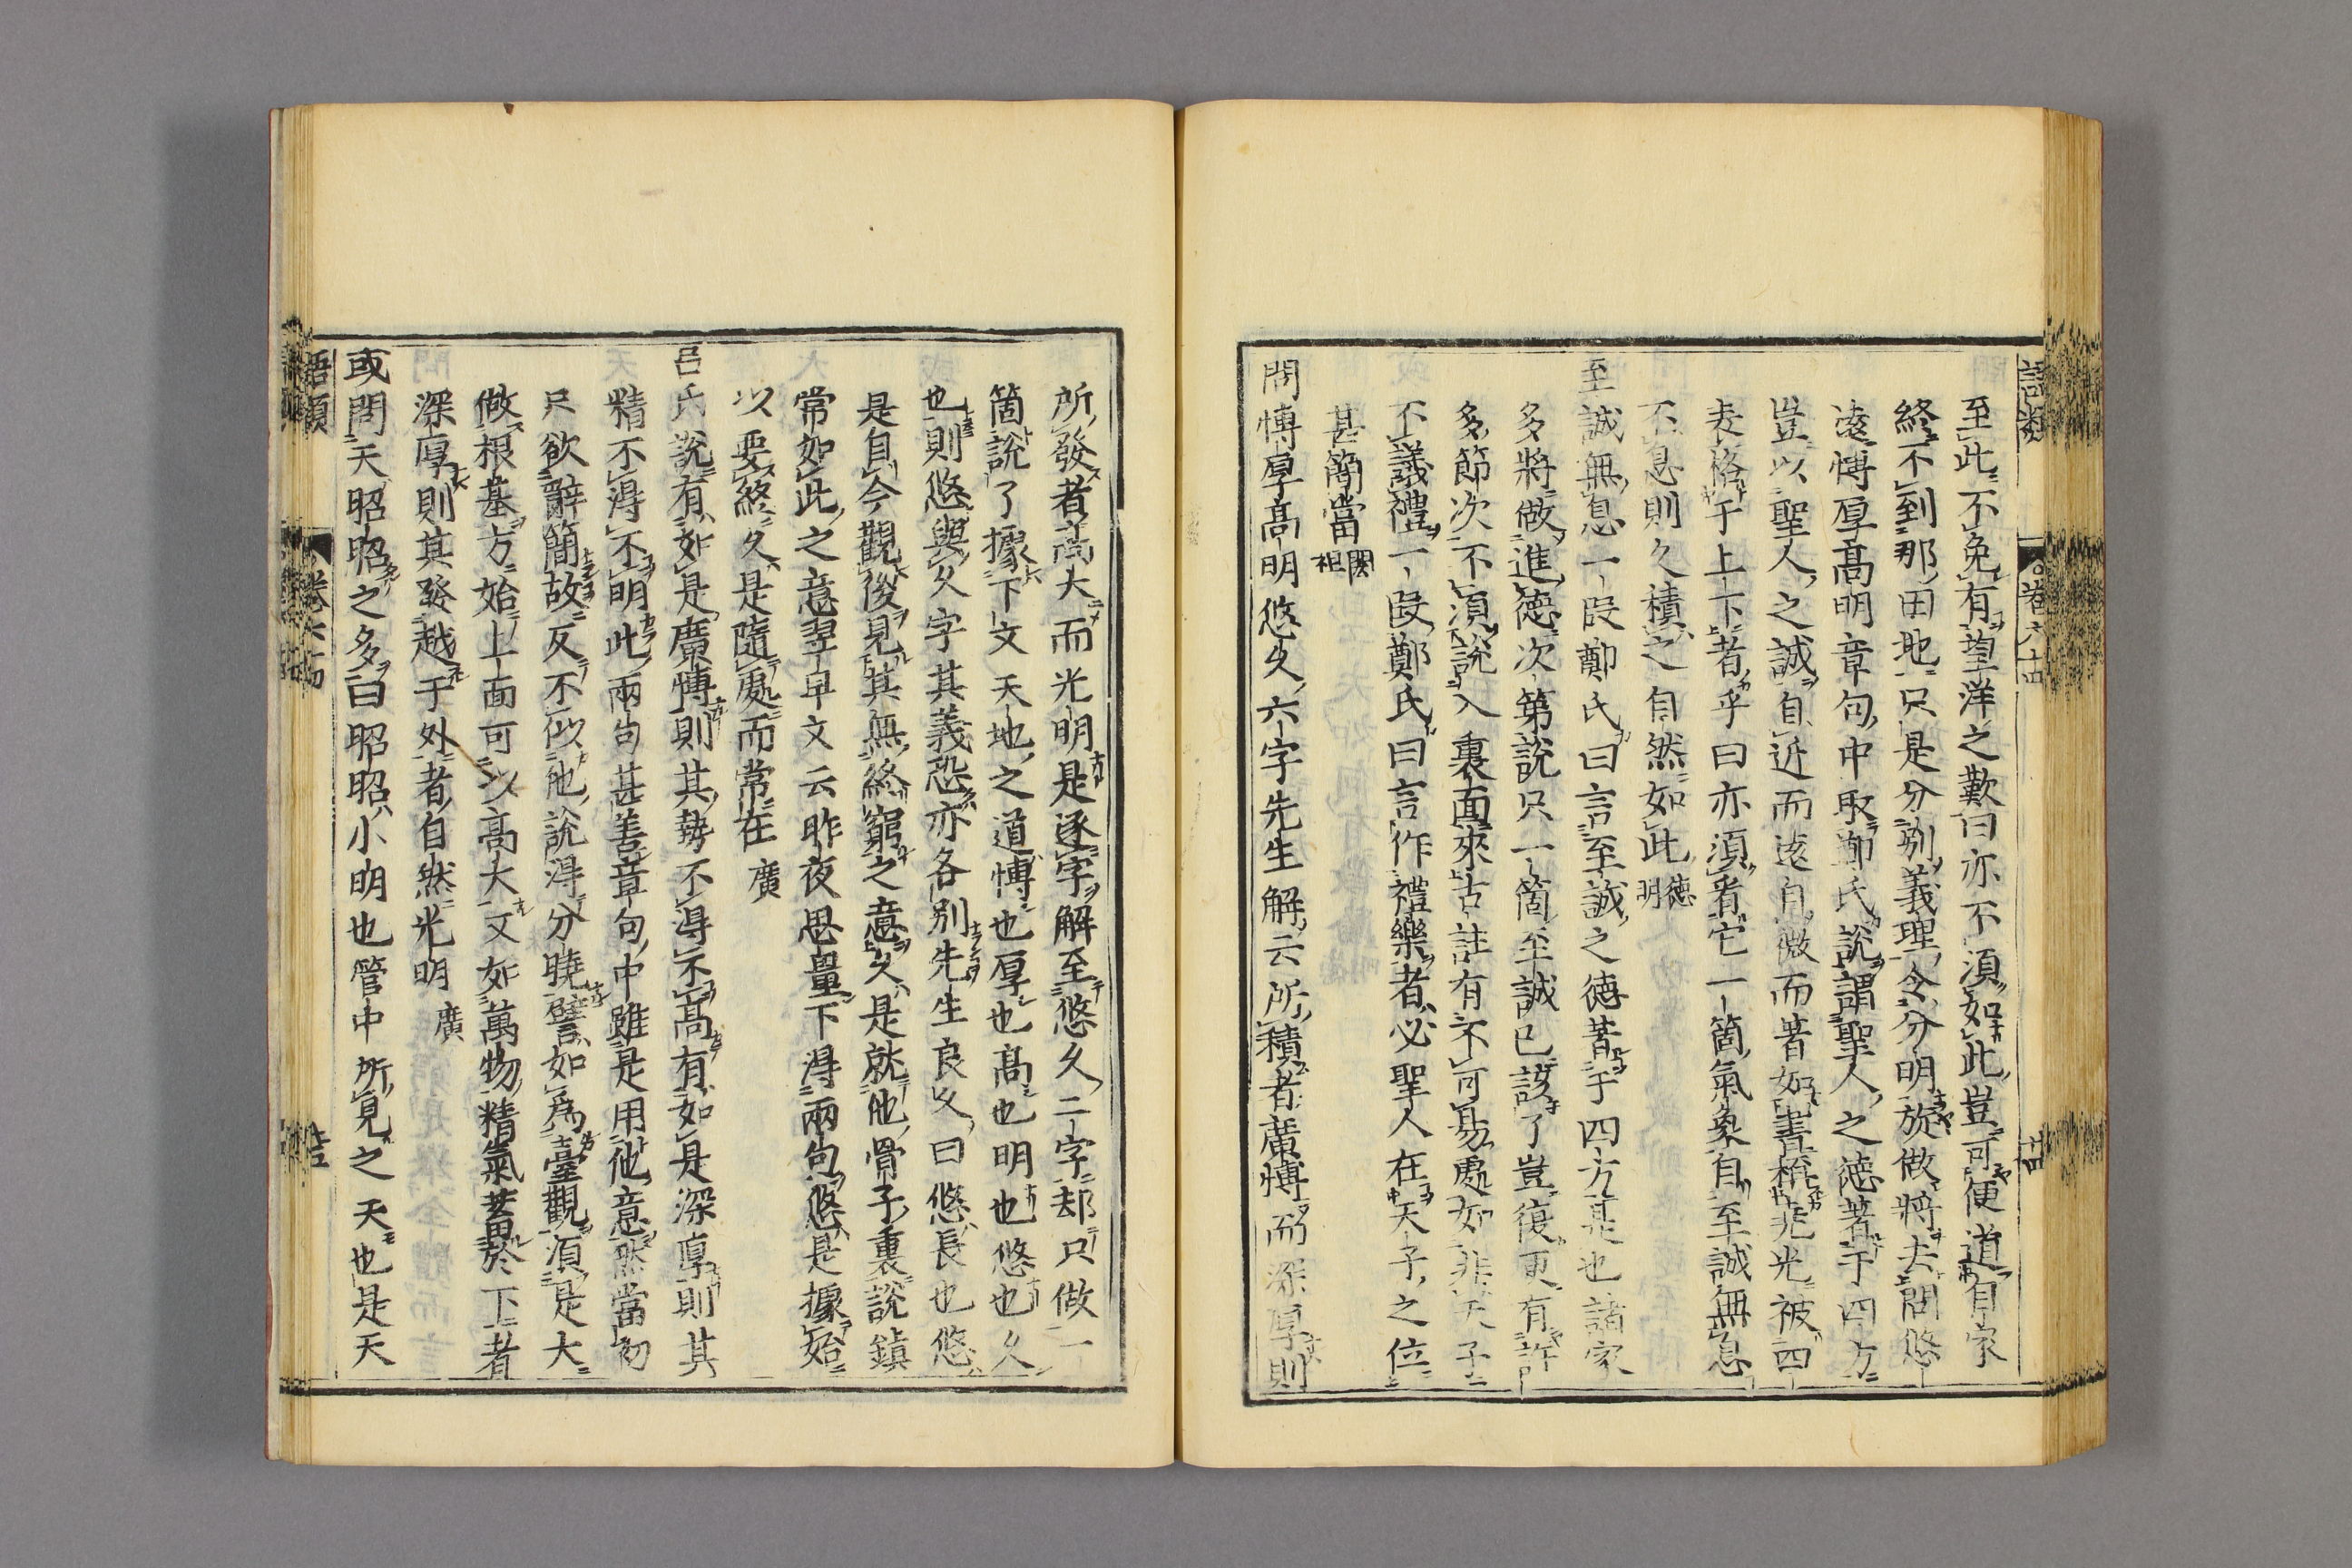 語類 卷六十四 十四
至此不免有望洋之歎曰亦不須如此豈可便道自家
終不到那田地只是分別義理令分明旋做將去問悠
遠博厚高明章句中取鄭氏說謂聖人之德著于四方
豈以聖人之誠自近而遠自微而著如書稱光被四
表格于上下者乎曰亦須看它一箇氣象自至誠無息
不息則久積之自然如此德明
至誠無息一段鄭氏曰言至誠之德著于四方是也諸家
多將做進德次第說只一箇至誠已該了豈復更有許
多節次不須說入裏面來古註有不可易處如非天子
不議禮一段鄭氏曰言作禮樂者必聖人在天子之位
甚簡當閎祖
問博厚高明悠久六字先生解云所積者廣博而深厚則
所發者高大而光明是逐字解至悠久二字却只做一
箇說了據下文天地之道博也厚也高也明也悠也久
也則悠與久字其義恐亦各別先生良久曰悠長也悠
是自今觀後見其無終窮之意久是就他骨子裏說鎮
常如此之意翌早又云昨夜思量下得兩句悠是據始
以要終久是隨處而常在 廣
呂氏說有如是廣博則其勢不得不高有如是深厚則其
精不得不明此兩句甚善章句中雖是用他意然當初
只欲辭簡故反不似他說得分曉譬如爲臺觀須是大
做根基方始上面可以高大又如萬物精氣蓄於下者
深厚則其發越于外者自然光明 廣
或問天昭昭之多曰昭昭小明也管中所見之天也是天
語類 卷六十四